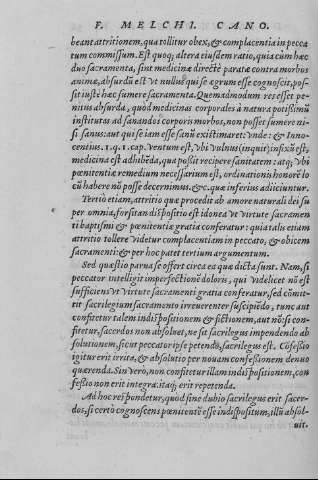 F. MELCHI. CANO.
beant attritionem, qua tollitur obex, & complacentia in pecca
tum commissum. Est quoq; altera eiusdem ratio, quia cùm hæc
duo sacramenta, sint medicinæ directè paratæ contra morbos
animæ, absurdũ est vt nullus qui se ægrum esse cognoscit, pos-
sit iustè hæc sumere sacramenta. Quemadmodum res esset pe-
nitus absurda, quòd medicinas corporales à natura potissimũ
institutas ad sanandos corporis morbos, non posset sumere ni-
si sanus: aut qui se iam esse sanũ existimaret: vnde: & Inno-
centius. 1. q. 1. cap. Ventum est, vbi vulnus (inquit) infixũ est,
medicina est adhibẽda, qua possit recipere sanitatem: atq; vbi
pœnitentiæ remedium necessarium est, ordinationis honorẽ lo
cũ habere nõ posse decernimus, &c. quæ inferius adiiciuntur.
Tertiò etiam, attritio quæ procedit ab amore naturali dei su
per omnia, forsitan dispositio est idonea vt virtute sacramen
ti baptismi & pœnitentiæ gratia conferatur: quia talis etiam
attritio tollere videtur complacentiam in peccato, & obicem
sacramenti: & per hoc patet tertium argumentum.
Sed quæstio parua se offert circa ea quæ dicta sunt. Nam, si
peccator intelligit imperfectionẽ doloris, qui videlicet nõ est
sufficiens vt virtute sacramenti gratia conferatur, sed cõmit-
tit sacrilegium sacramento irreuerenter suscipiẽdo, tunc aut
confitetur talem indispositionem & fictionem, aut nõ: si con-
fitetur, sacerdos non absoluet, ne sit sacrilegus impendendo ab
solutionem, sicut peccator ipse petendo, sacrilegus est. Cõfessio
igitur erit irrita, & absolutio per nouam confessionem denuo
quærenda. Sin verò, non confitetur illam indispositionem, con
fessio non erit integra: itaq; erit repetenda.
Ad hoc respondetur, quòd sine dubio sacrilegus erit sacer-
dos, si certò cognoscens pœnitentẽ esse indispositum, illũ absol-
uit.